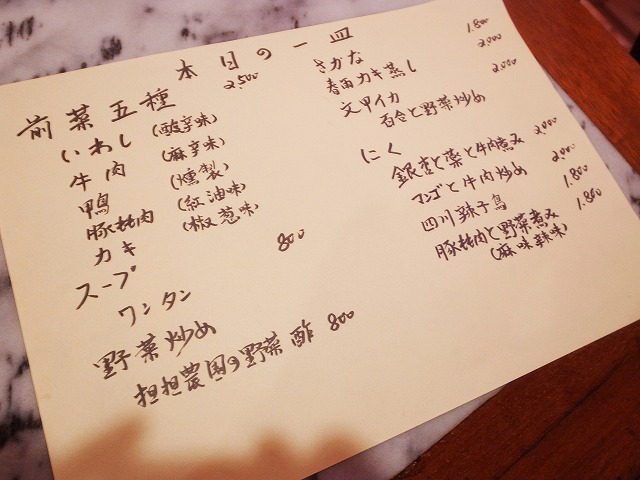 本日の一皿
前菜五種 2,500
いわし (酸辛味)
牛肉 (麻辛味)
鴨 (燻製)
豚肉 (紅油味)
カキ (椒葱味)
スープ 800
ワンタン
野菜炒め
担担農園の野菜 酢 800
さかな
春雨カキ蒸し 1,800
文甲イカ 2,000
百合と野菜炒め 2,000
にく
銀杏と薬と牛肉煮み 2,000
マンゴと牛肉炒め 2,000
四川辣子鳥 1,800
豚肉と野菜煮み 1,800
(麻味辣味)